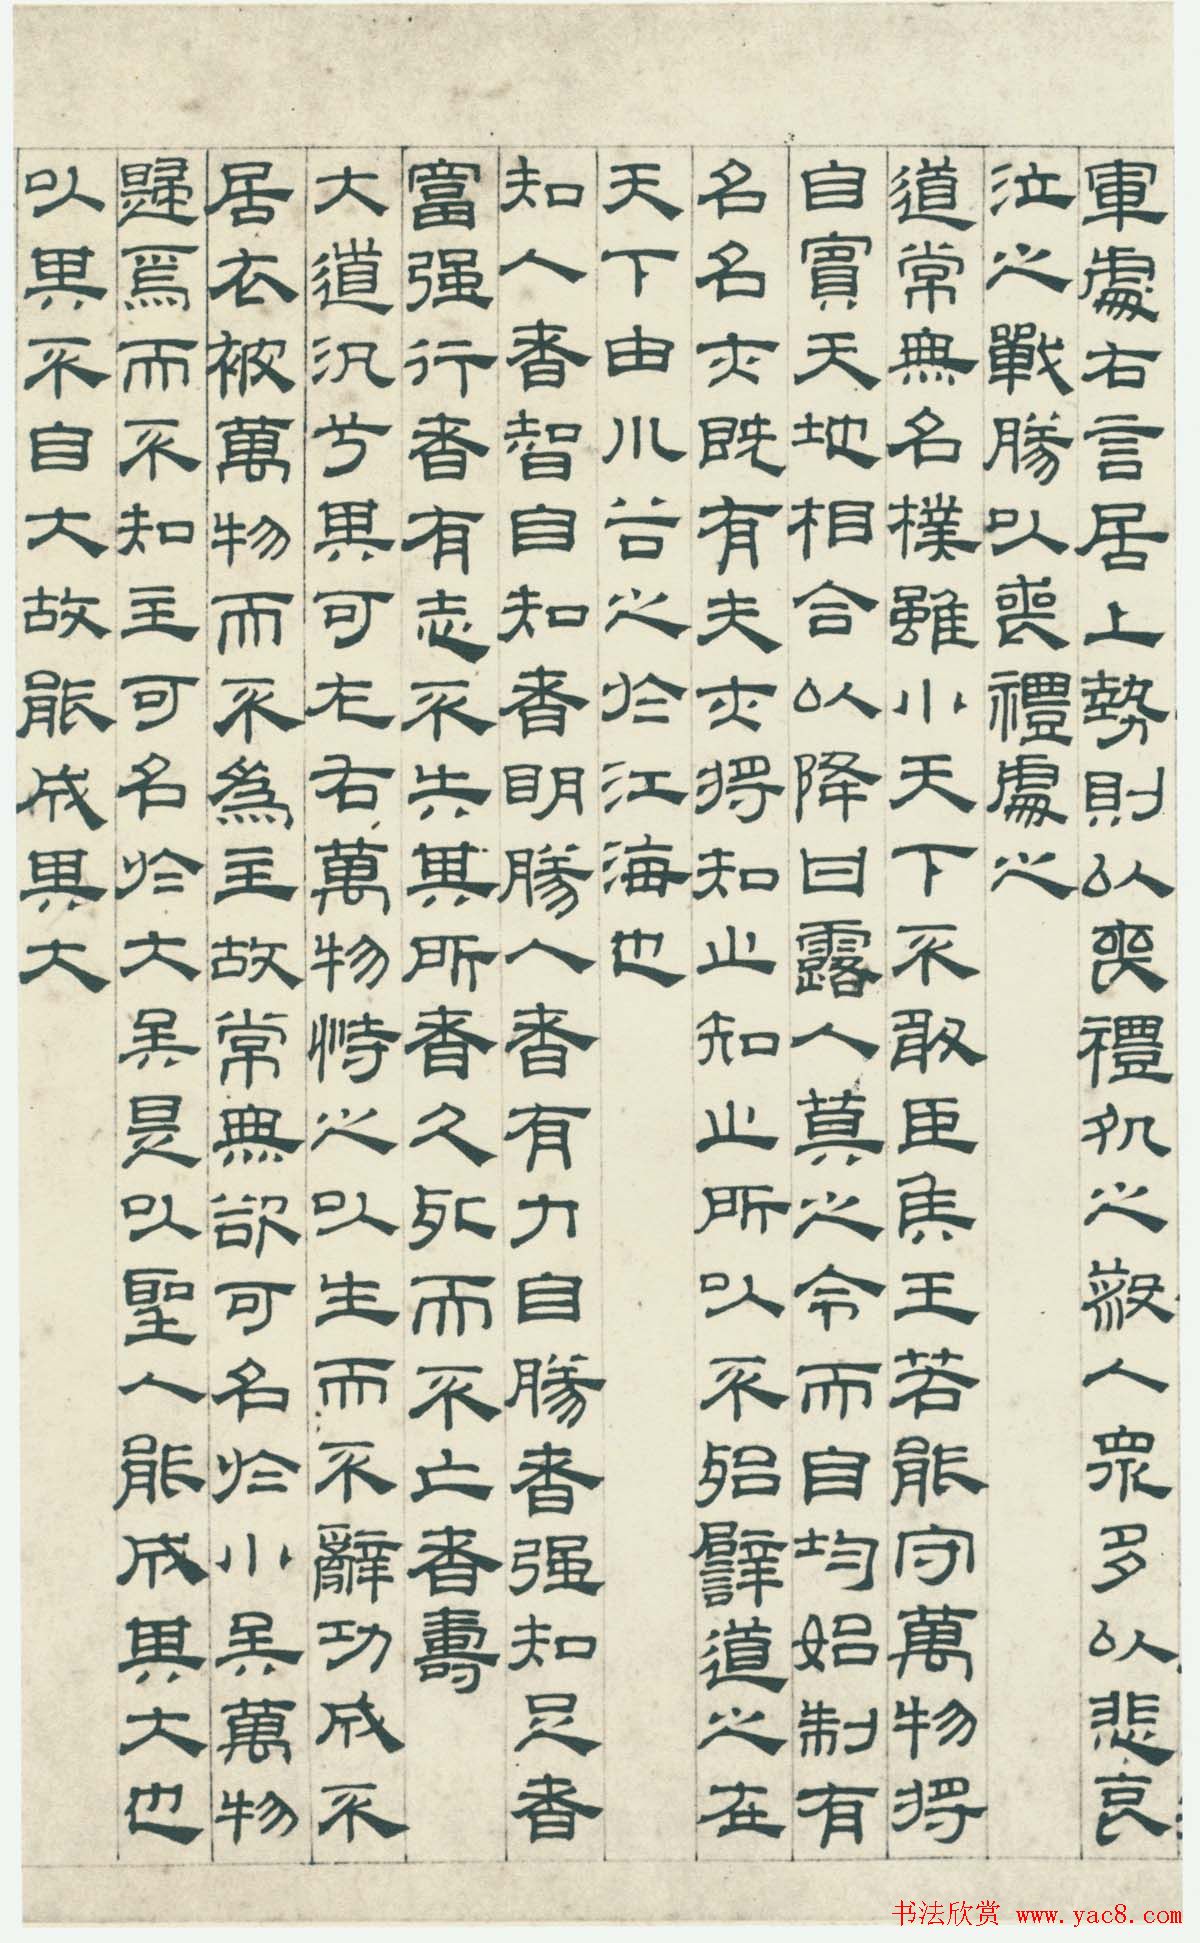 軍處右言居上勢則以喪禮処之殺人衆多以悲哀
泣之戰勝以喪禮處之
道常無名樸雖小天下不敢臣侯王若能守萬物將
自賓天地相合以降甘露人莫之令而自均始制有
名名亦既有夫亦將知止知止所以不殆譬道之在
天下由川谷之於江海也
知人者智自知者明勝人者有力自勝者强知足者
富强行者有志不失其所者久死而不亡者壽
大道汎兮其可左右萬物恃之以生而不辭功成不
居衣被萬物而不為主故常無欲可名於小矣萬物
歸焉而不知主可名於大矣是以聖人能成其大也
以其不自大故能成其大
书法欣赏 www.yac8.com